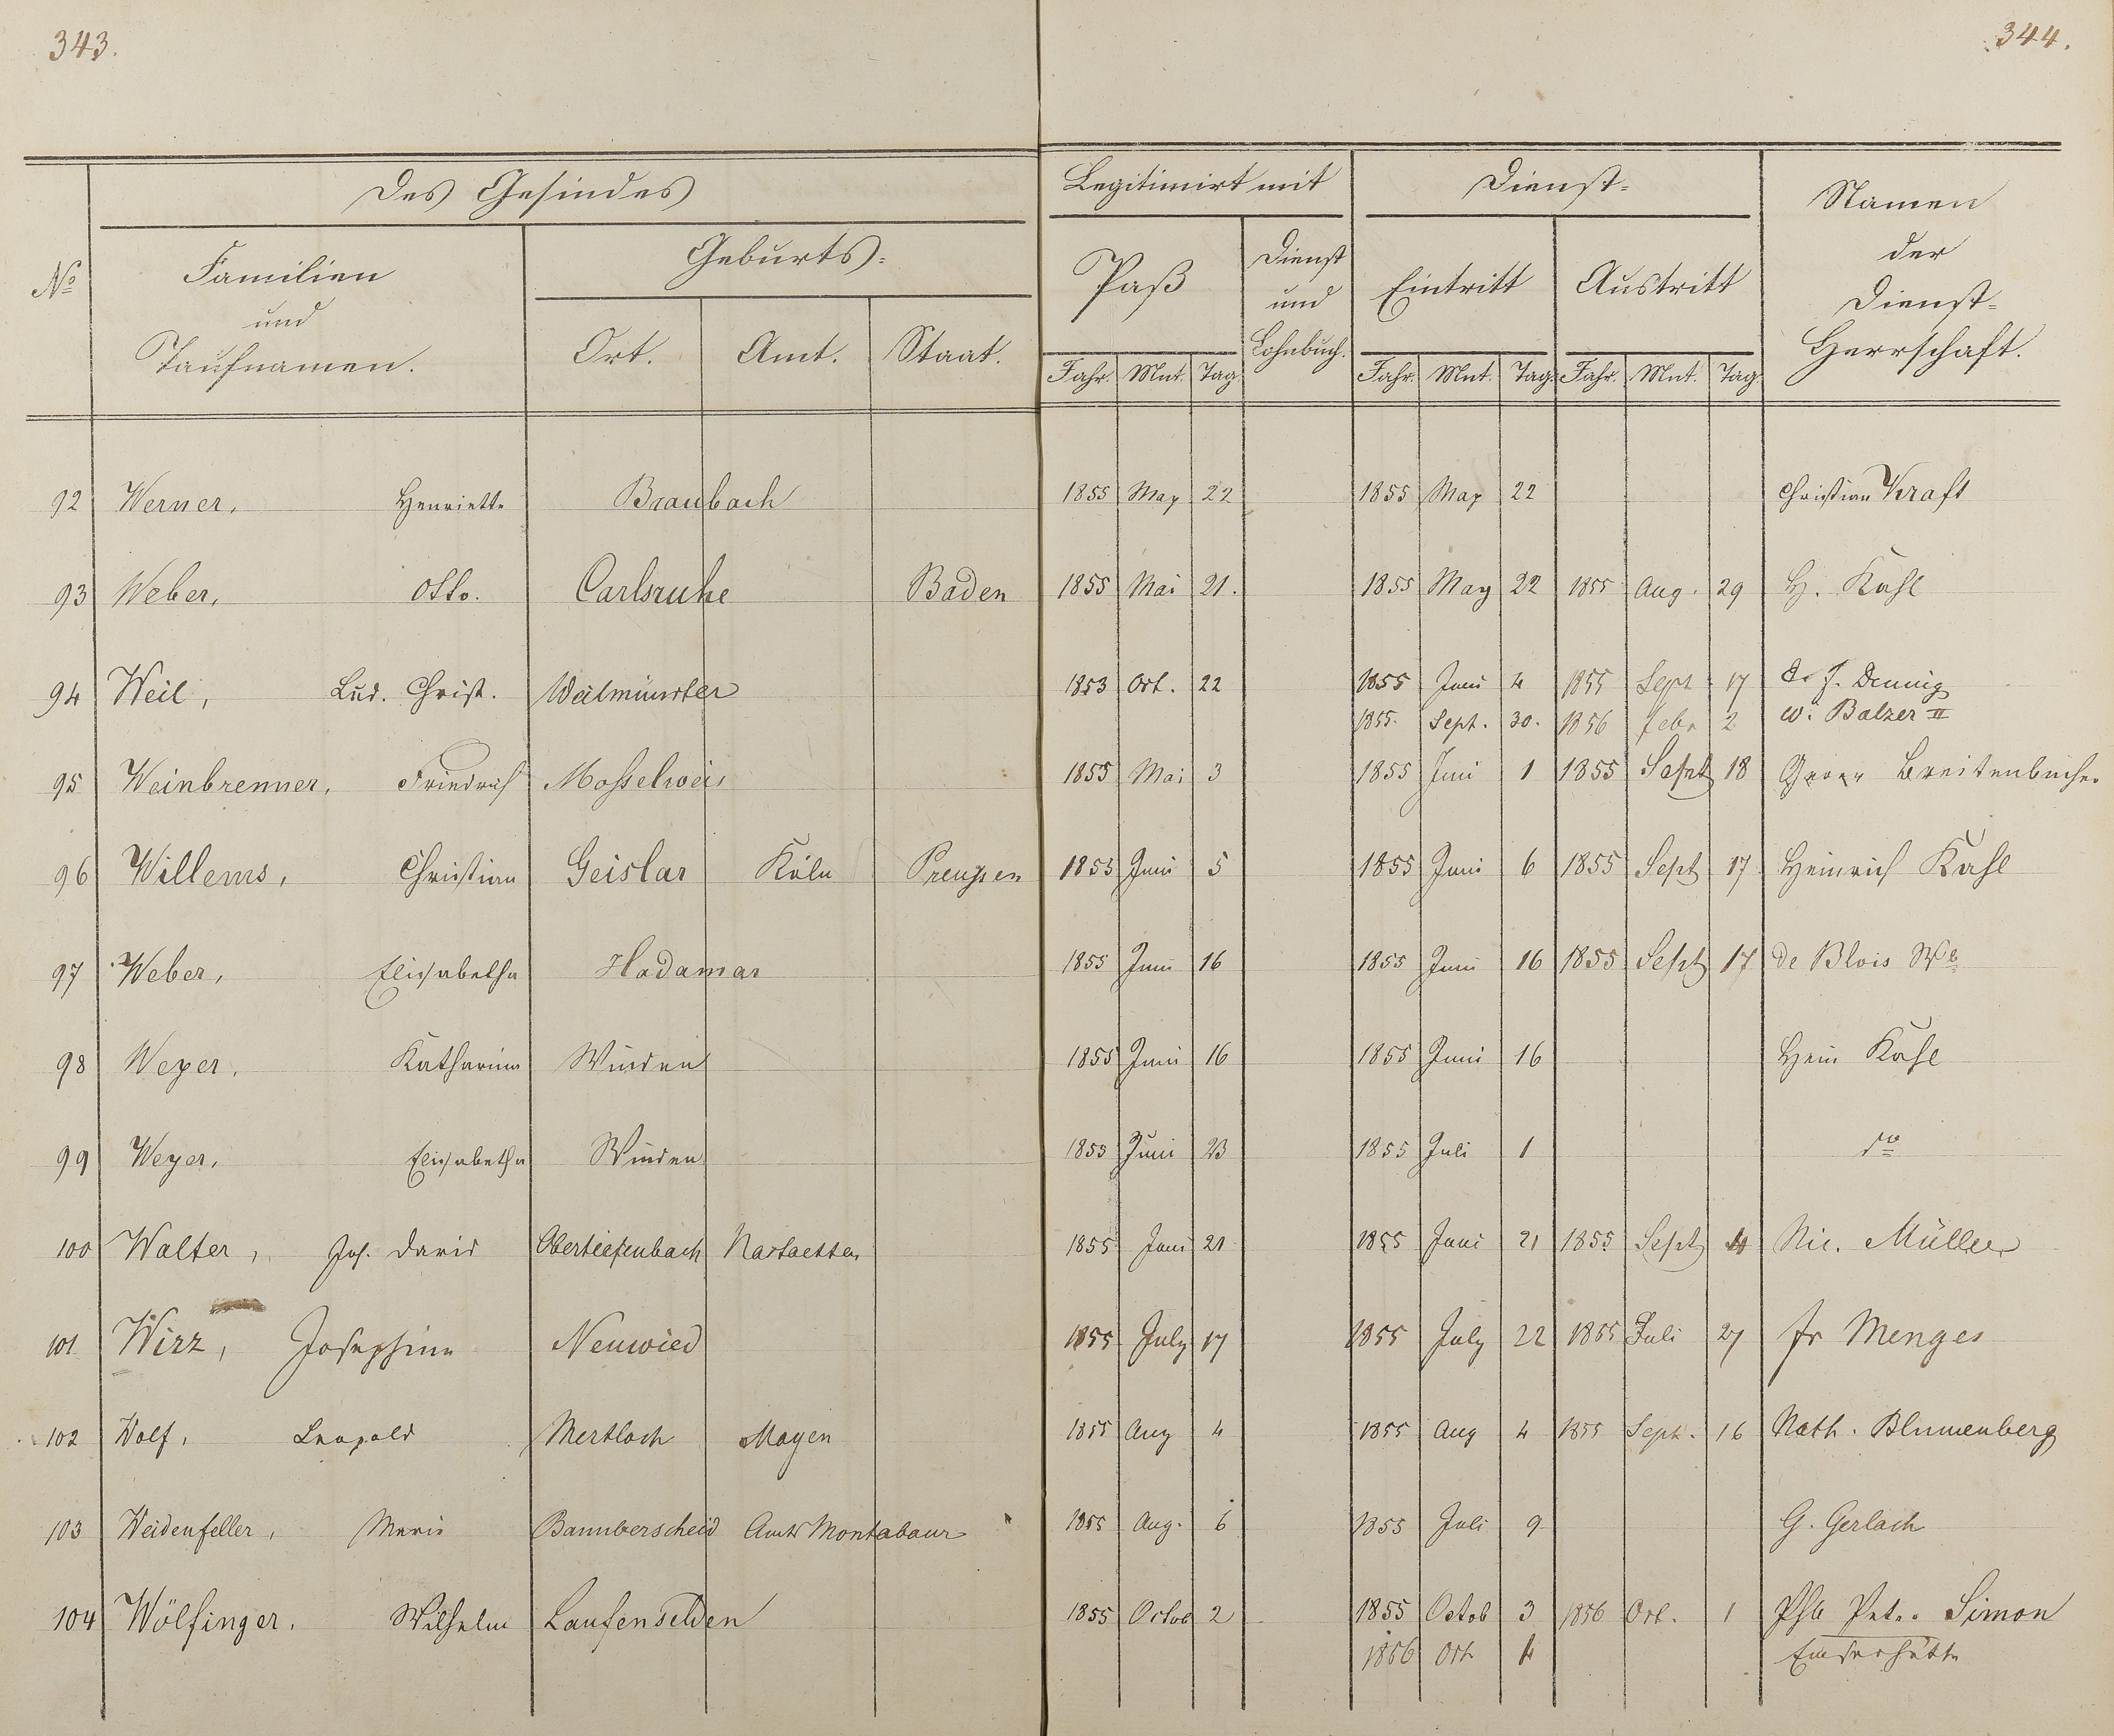 343.
344.
Des Gesindes
Legitimirt mit
Dienst-
Namen der Dienst-Herrschaft.
No
Familien und Taufnamen.
Geburts-
Paß
Dienst und Lohnbuch.
Eintritt
Austritt
Ort. Amt. Staat.
Jahr. Mnt. Tag. Jahr. Mnt. Tag. Jahr. Mnt. Tag.
92 Werner, Henriette Braubach 1855 May 22 1855 May 22 Christian Kraft
93 Weber, Otto. Carlsruhe Baden 1855 Mai 21. 1855 May 22 1855 Aug. 29 H. Kahl
94 Weil, Lud. Christ. Weilmünster 1853 Oct. 22 1855 Juni 4 1855 Sept 17
1855. Sept. 30. 1856 febr 2 W. Balzer II
95 Weinbrenner, Friedrich Mosselweis 1855 Mai 3 1855 Juni 1 1855 Sept 18 Breitenbucher
96 Willems, Christian Geislar Köln Preußen 1855 Juni 5 1855 Juni 6 1855 Sept 17 Heinrich Kahl
97 Weber, Elisabetha Hadamar 1855 Juni 16 1855 Juni 16 1855 Sept 17 de Blois We
98 Weyer, Katharina Winden 1855 Juni 16 1855 Juni 16 Hein Kahl
99 Weyer, Elisabetha Winden 1855 Juni 23 1855 Juli 1 do
100 Walter, Joh. David Obertiefenbach Nastaetten 1855 Juni 21 1855 Juni 21 1855 Sept Nic. Müller
101 Wirz, Josephine Neuwied 1855 July 17 1855 July 22 1855 Juli 27 Fr Menges
102 Wolf, Leopold Mertloch Mayen 1855 Aug 4 1855 Aug 4 1855 Sept. 16 Nath. Blumenberg
103 Weidenfeller, Marie Bannberscheid Amts Montabaur 1855 Aug. 6 1855 Juli 9 G. Gerlach
104 Wölfinger, Wilhelm Laufenselden 1855 Octob 2 1855 Octob 3 1856 Oct. 1 Phil Peter Simon
1856 Oct 4 Emserhütte